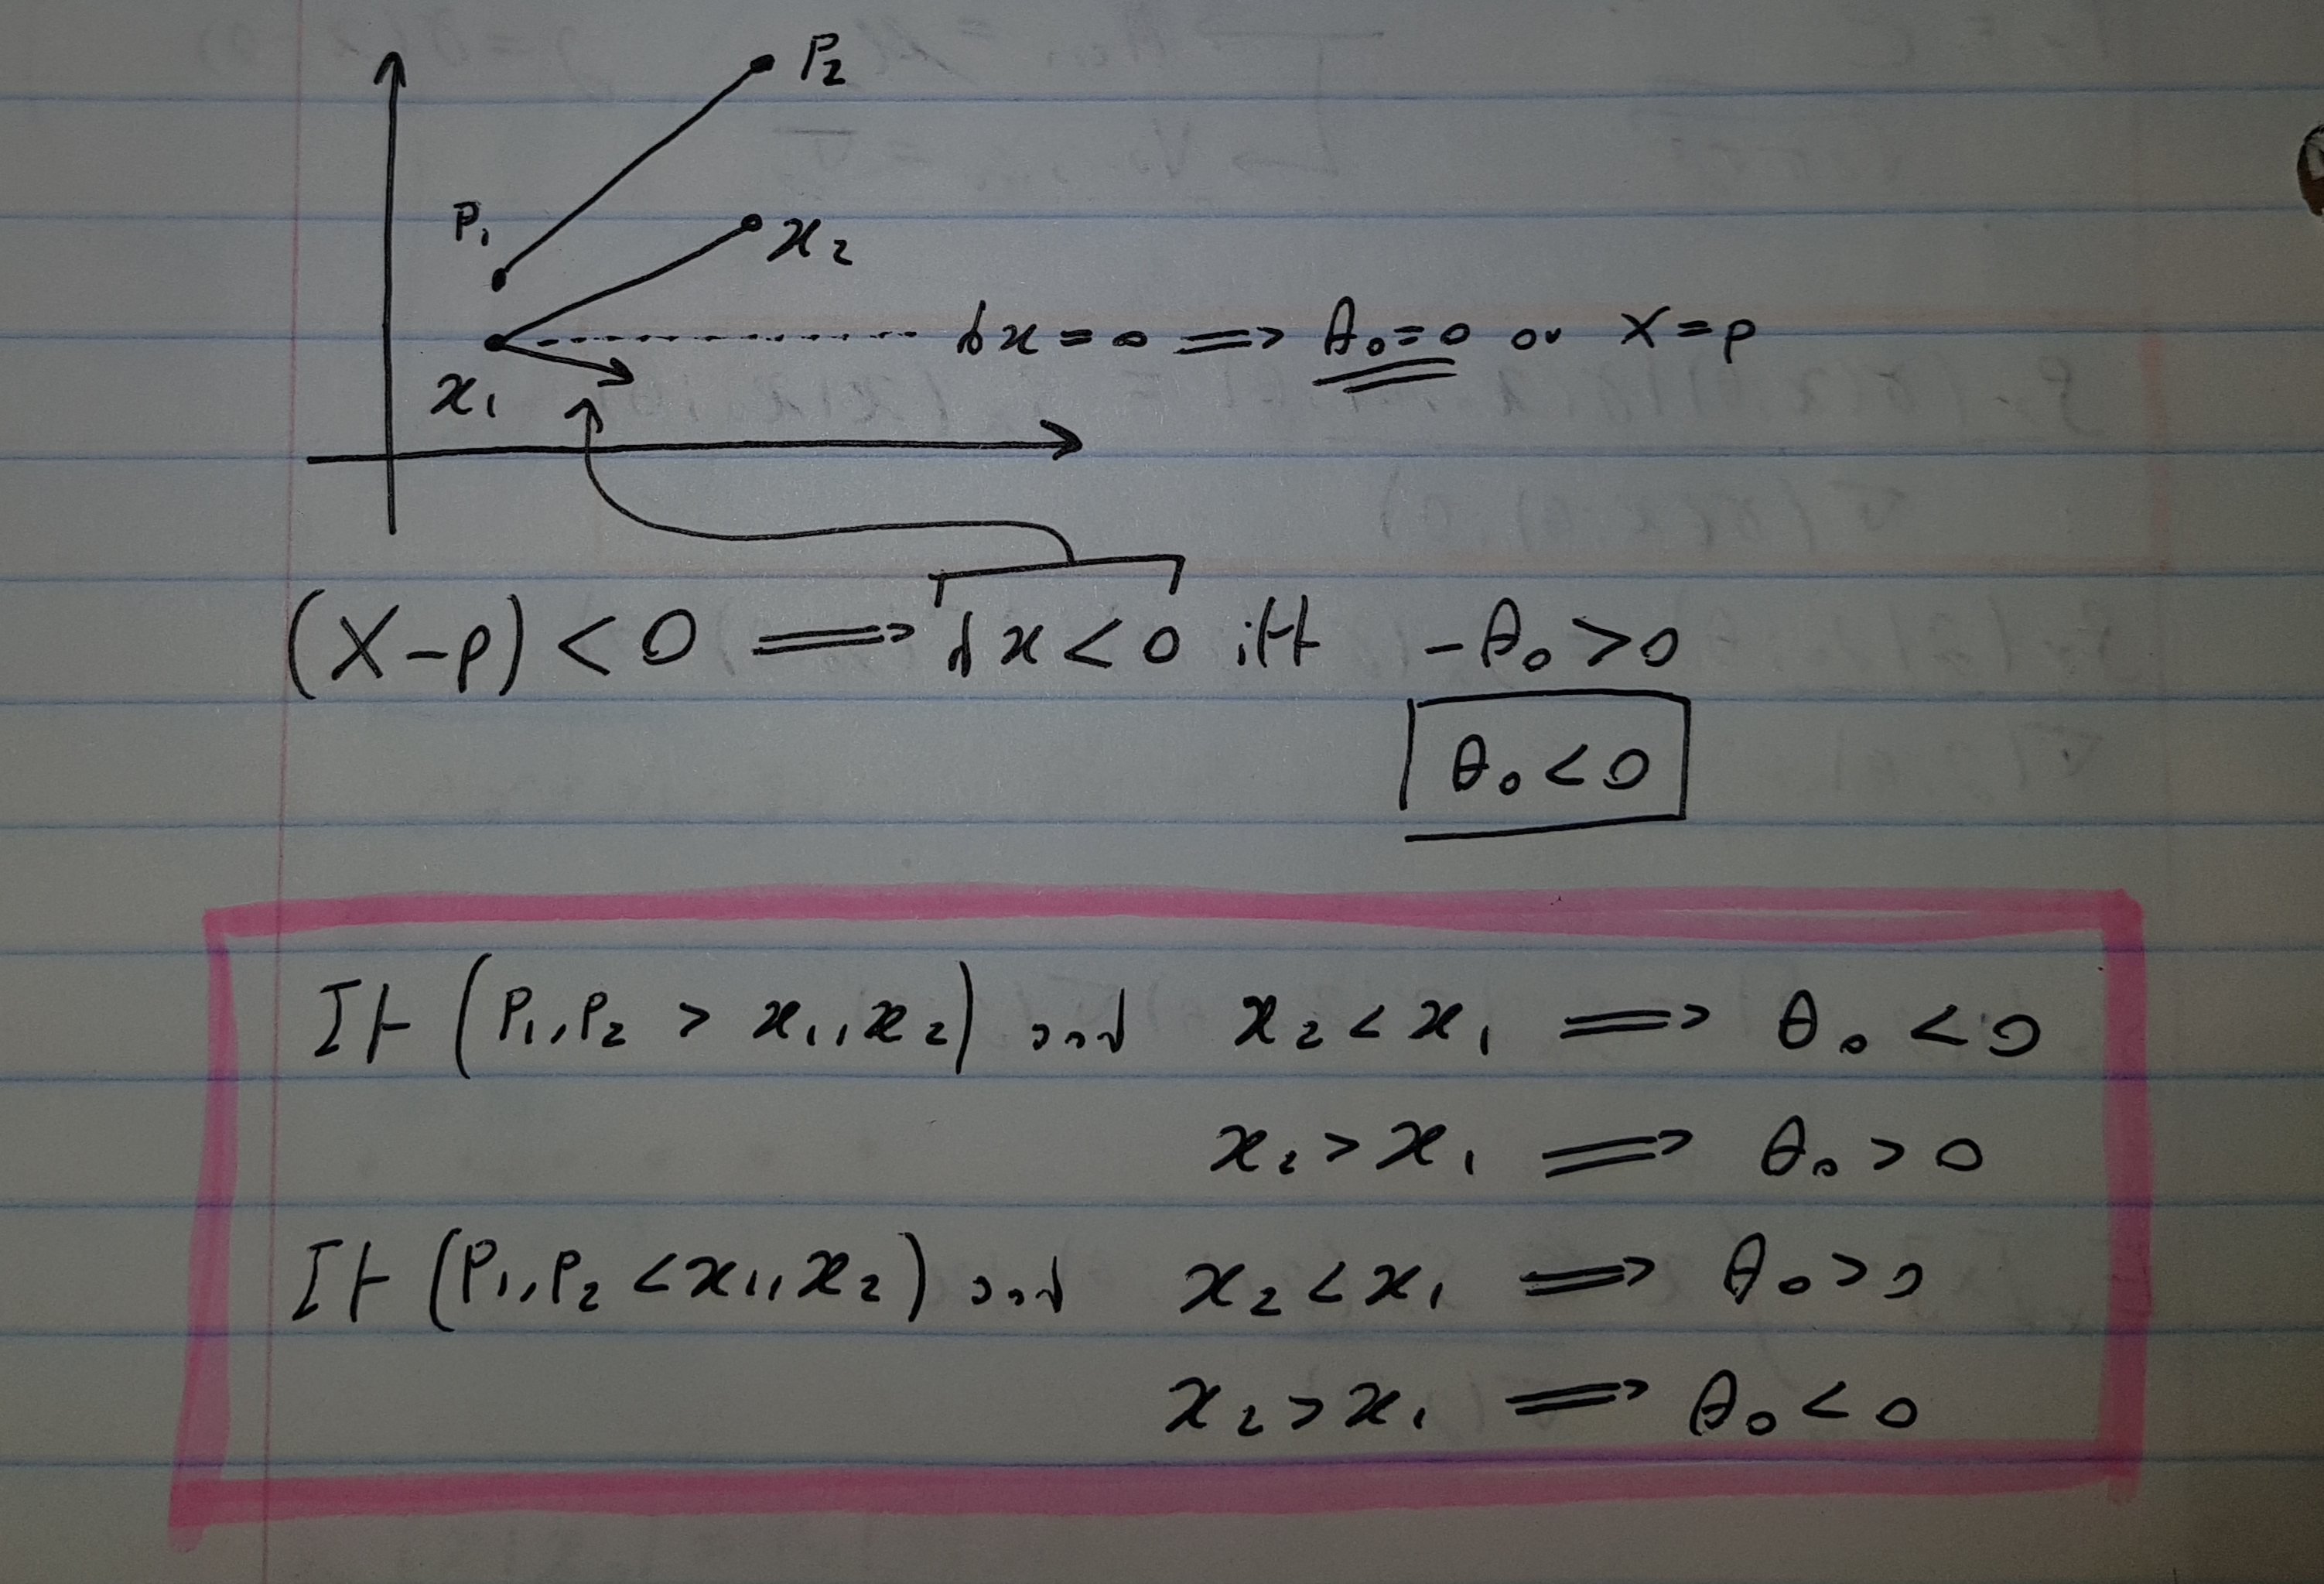 P₂
P₁
x₂
dx = 0 ⟹ θ₀ = 0 or X = p
x₁
(X − p) < 0 ⟹ dx < 0 iff −θ₀ > 0
θ₀ < 0
If (P₁, P₂ > x₁, x₂) and x₂ < x₁ ⟹ θ₀ < 0
x₂ > x₁ ⟹ θ₀ > 0
If (P₁, P₂ < x₁, x₂) and x₂ < x₁ ⟹ θ₀ > 0
x₂ > x₁ ⟹ θ₀ < 0